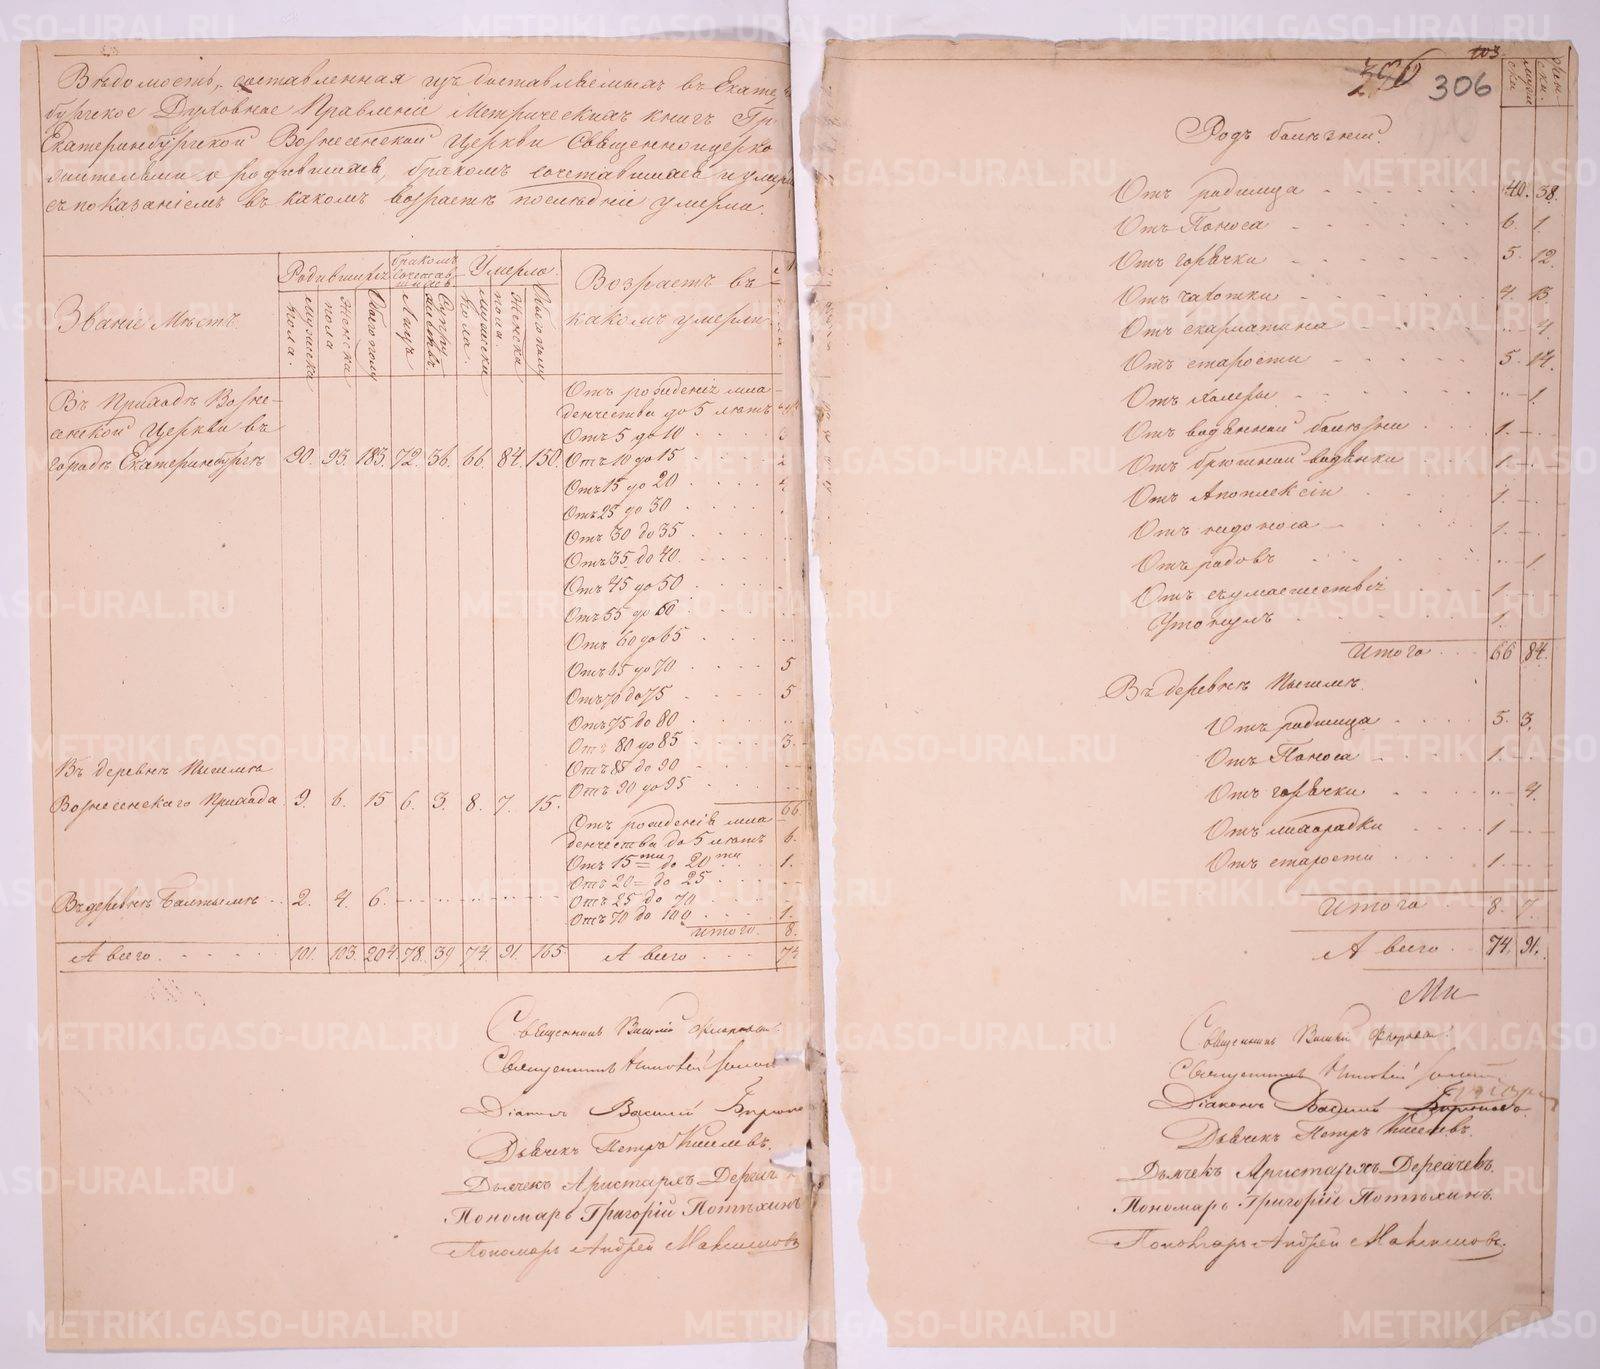 Вѣдомость, составленная изъ доставляемыхъ в Екате
бургское Духовное Правленіе Метрическихъ книгъ Гр
Екатеринбургской Вознесенской Церкви Священноцерко
служителями о родившихся, бракомъ сочетавшихся и умер
съ показаніемъ въ какомъ возрастѣ последніе умерли.
Званіе Мѣстъ.
Родившихся
Мужеска пола.
Женска пола
Обоего полу
бракомъ сочетавшихся
Лицъ
Супружествъ
Умерло.
Мужеска пола.
Женска пола.
Обоего полу
Возрастъ въ
какомъ умерли
Въ Приходѣ Возне-
сенской Церкви въ
городѣ Екатеринбургѣ 90. 93. 183. 72. 36. 66. 84. 150.
Отъ рожденія мла
денчества до 5 лѣтъ
Отъ 5 до 10 3
Отъ 10 до 15 2
Отъ 15 до 20
Отъ 25 до 30
Отъ 30 до 35
Отъ 35 до 40
Отъ 45 до 50
Отъ 55 до 60
Отъ 60 до 65
Отъ 65 до 70 5
Отъ 70 до 75 5
Отъ 75 до 80
Отъ 80 до 85 3.
Отъ 85 до 90
Отъ 90 до 95
66.
Въ деревнѣ Пышмѣ
Вознесенскаго Прихода. 9. 6. 15 6. 3. 8. 7. 15.
Отъ рожденія мла
денчества до 5 лѣтъ 6.
Отъ 15ти до 20ти 1.
Отъ 20 до 25
Отъ 25 до 70
Отъ 70 до 100 1.
Итого. 8.
Въ деревнѣ Балтымѣ 2. 4. 6.
А всего 101. 103. 204. 78. 39 74. 91. 165.
А всего 74
Священникъ Василій Флоровъ
Священникъ
Діаконъ Василій Бирюко
Дьячекъ Петръ Киселевъ.
Дьячекъ Аристархъ Дергач
Пономарь Григорій Потѣхинъ
Пономарь Андрей Максимовъ
103
306
Родъ болѣзней.
Отъ родимца 40. 38.
Отъ Поноса 6. 1.
Отъ горячки 5. 12.
Отъ чахотки 4. 13.
Отъ скарлатина 4.
Отъ старости 5. 14.
Отъ холеры 1.
Отъ водяной болѣзни 1.
Отъ брюшной водянки 1.
Отъ Апоплексіи 1.
Отъ недоноса 1.
Отъ родовъ 1.
Отъ съумасшествія 1.
Утонулъ 1.
Итого 66 84.
Въ деревнѣ Пышмѣ.
Отъ родимца 5. 3.
Отъ Поноса 1.
Отъ горячки 4.
Отъ лихорадки 1
Отъ старости 1.
Итого 8. 7.
А всего 74. 91.
Священникъ Василій Флоровъ
Священникъ
Діаконъ Василій Бирюковъ
Дьячекъ Петръ Киселевъ.
Дьячекъ Аристархъ Дергачевъ.
Пономарь Григорій Потѣхинъ.
Пономарь Андрей Максимовъ.
METRIKI.GASO-URAL.RU